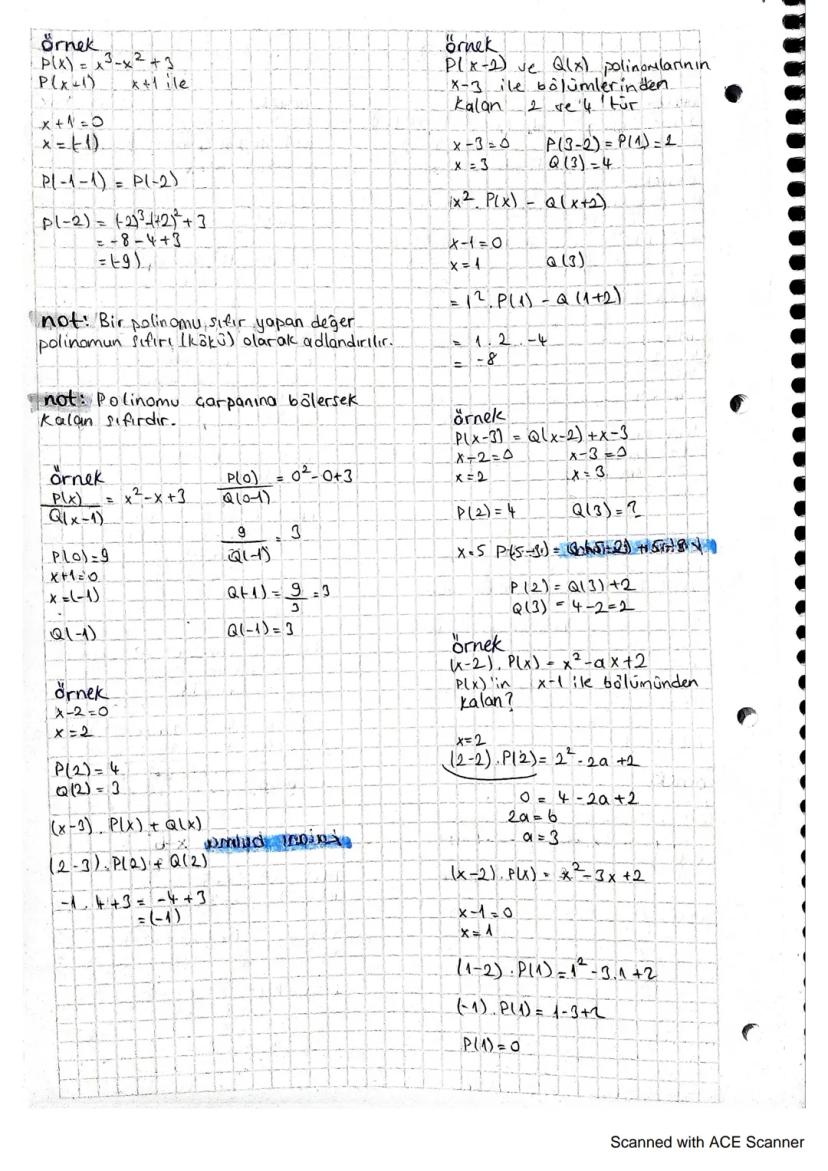 örnek
P(x) = x³-x²+3
P(x+1) x+1 ile
x+1=0
x=(-1)
P(-1-1) = P(-2)
P(-2) = (-2)³-(+2)²+3
= -8-4+3
=(-9)
not: Bir polinomu sıfır yapan değer
polinomun sıfırı (kökü) olarak adlandırılır.
not: Polinomu çarpanına bölersek
kalan sıfırdır.
örnek
P(x)/Q(x-1) = x²-x+3
P(0)=9
x+1=0
x=(-1)
Q(-1)
P(0)/Q(0-1) = 0²-0+3
9/Q(-1) = 3
Q(-1) = 9/3 = 3
Q(-1)=3
örnek
x-2=0
x=2
P(2)=4
Q(2)=3
(x-3). P(x) + Q(x)
(2-3). P(2) + Q(2)
-1. 4+3 = -4+3
=(-1)
örnek
P(x-2) ve Q(x) polinomlarının
x-3 ile bölümlerinden
kalan 2 ve 4'tür
x-3=0 P(3-2)=P(1)=2
x=3 Q(3)=4
x². P(x) - Q(x+2)
x-1=0
x=1 Q(3)
= 1². P(1) - Q(1+2)
= 1. 2. -4
= -8
örnek
P(x-3) = Q(x-2)+x-3
x-2=0 x-3=0
x=2 x=3
P(2)=4 Q(3)=?
x=5 P(5-3)=
P(2)=Q(3)+2
Q(3) = 4-2=2
örnek
(x-2). P(x) = x²-ax+2
P(x)'in x-1 ile bölümünden
kalan?
x=2
(2-2). P(2)= 2²-2a+2
0 = 4-2a+2
2a=6
a=3
(x-2). P(x) = x²-3x+2
x-1=0
x=1
(1-2). P(1)=1²-3.1+2
(-1). P(1)= 1-3+2
P(1)=0
Scanned with ACE Scanner